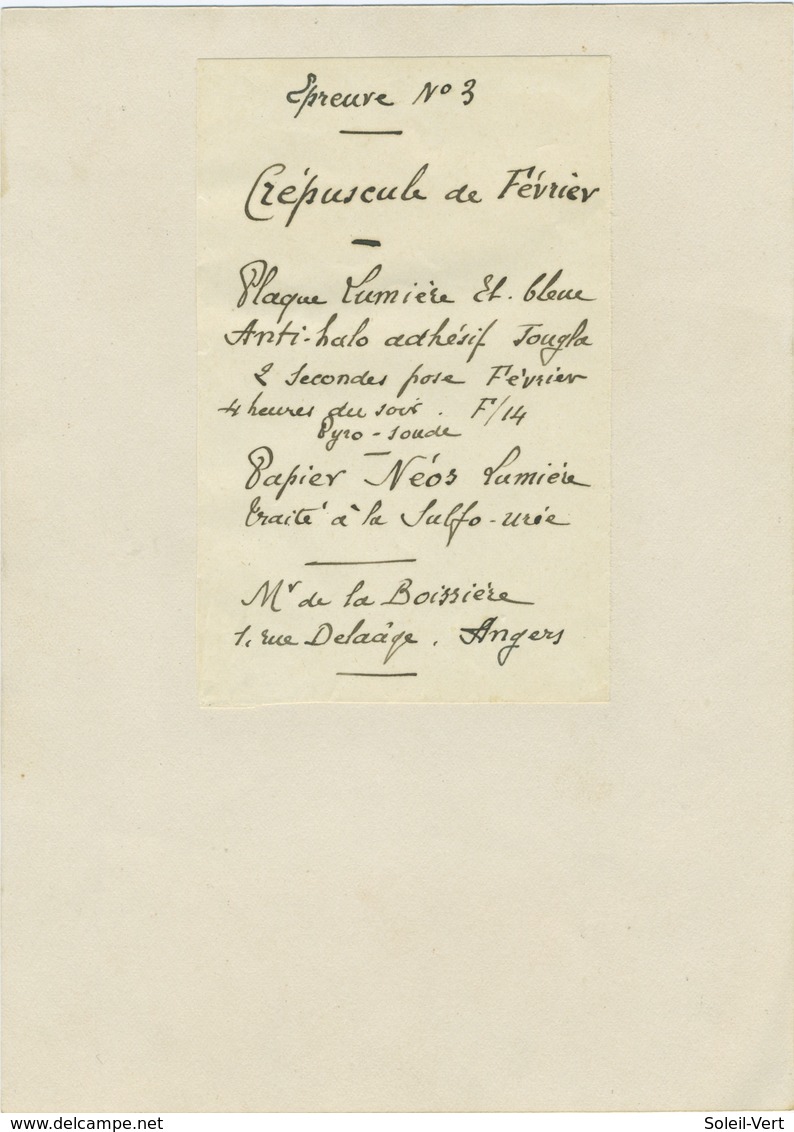 Epreuve No 3
Crépuscule de Février
Plaque Lumière Et. bleue
Anti-halo adhésif Jougla
2 secondes pose Février
4 heures du soir. F/14
Pyro-soude
Papier Néos Lumière
traité à la Sulfo-urée
Mr de la Boissière
1, rue Delaâge. Angers
www.delcampe.net
Soleil-Vert